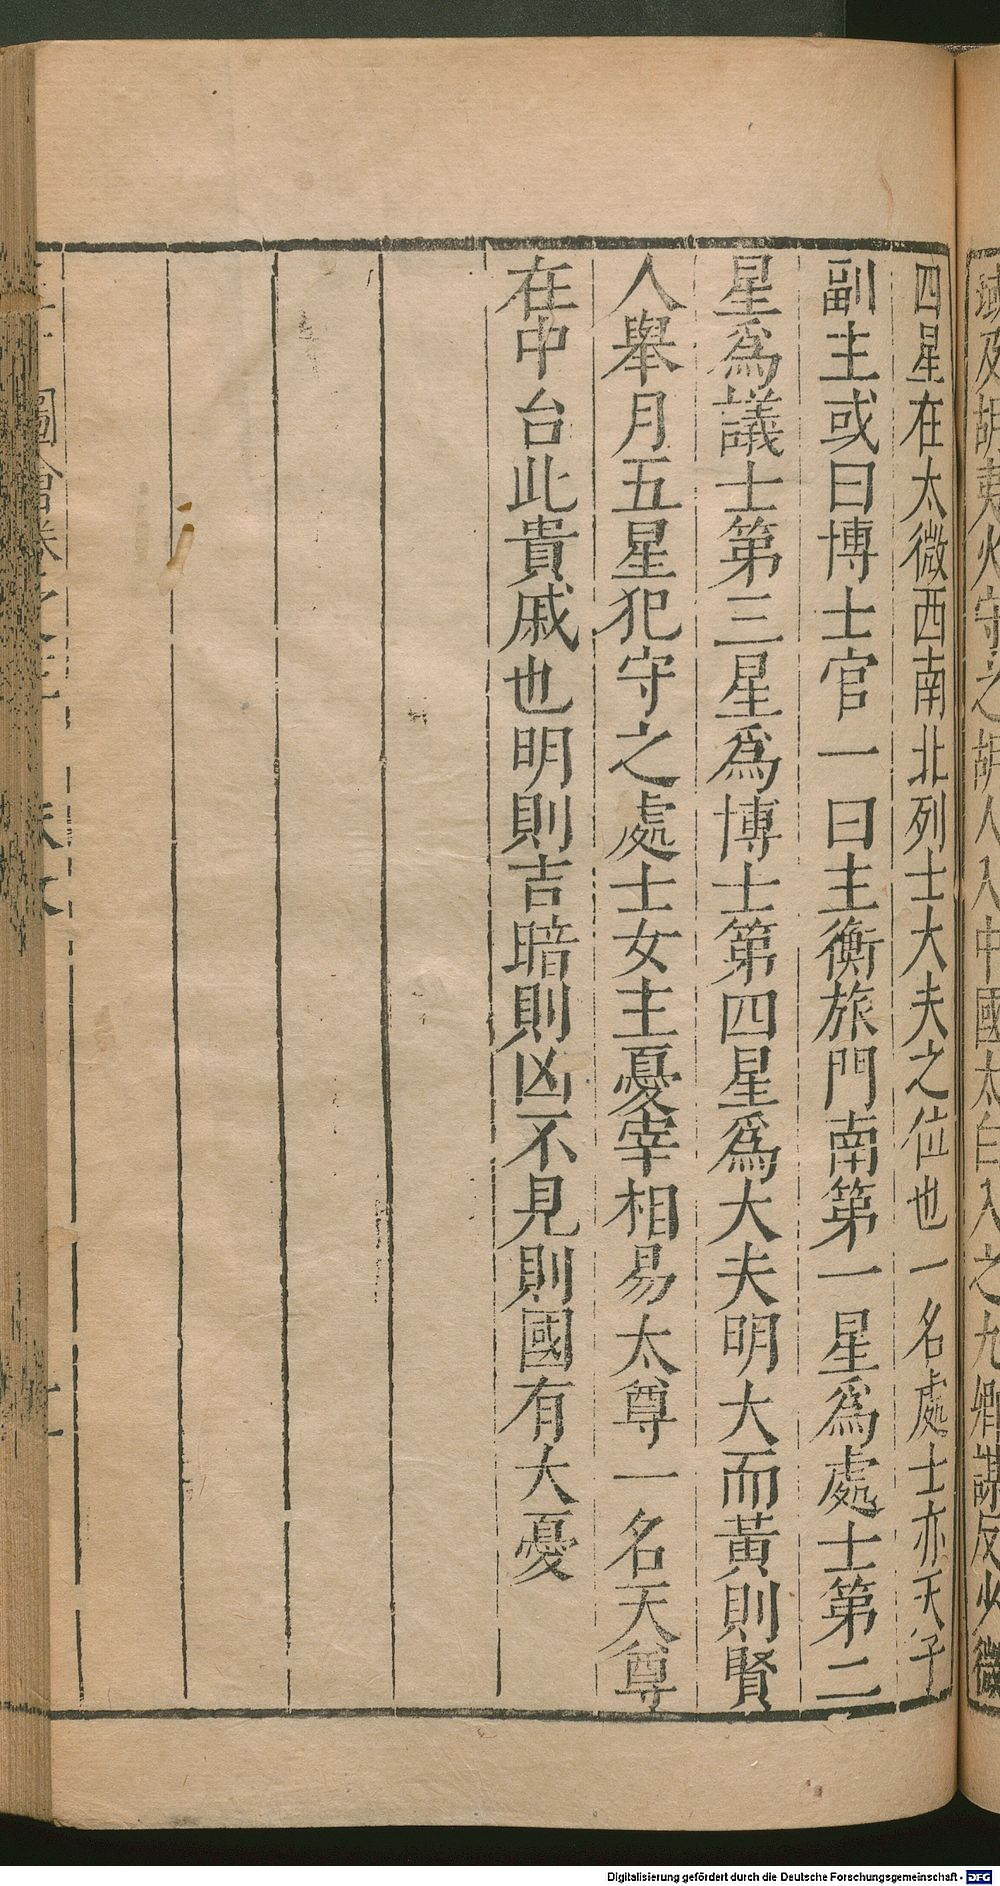 域及胡夷火守之胡人入中國太白入之九卿謀反少微
四星在太微西南北列士大夫之位也一名處士亦天子
副主或曰博士官一曰主衡旅門南第一星爲處士第二
星爲議士第三星爲博士第四星爲大夫明大而黃則賢
人舉月五星犯守之處士女主憂宰相易太尊一名天尊
在中台此貴戚也明則吉暗則凶不見則國有大憂
圖會卷之三 天文
Digitalisierung gefördert durch die Deutsche Forschungsgemeinschaft - DFG